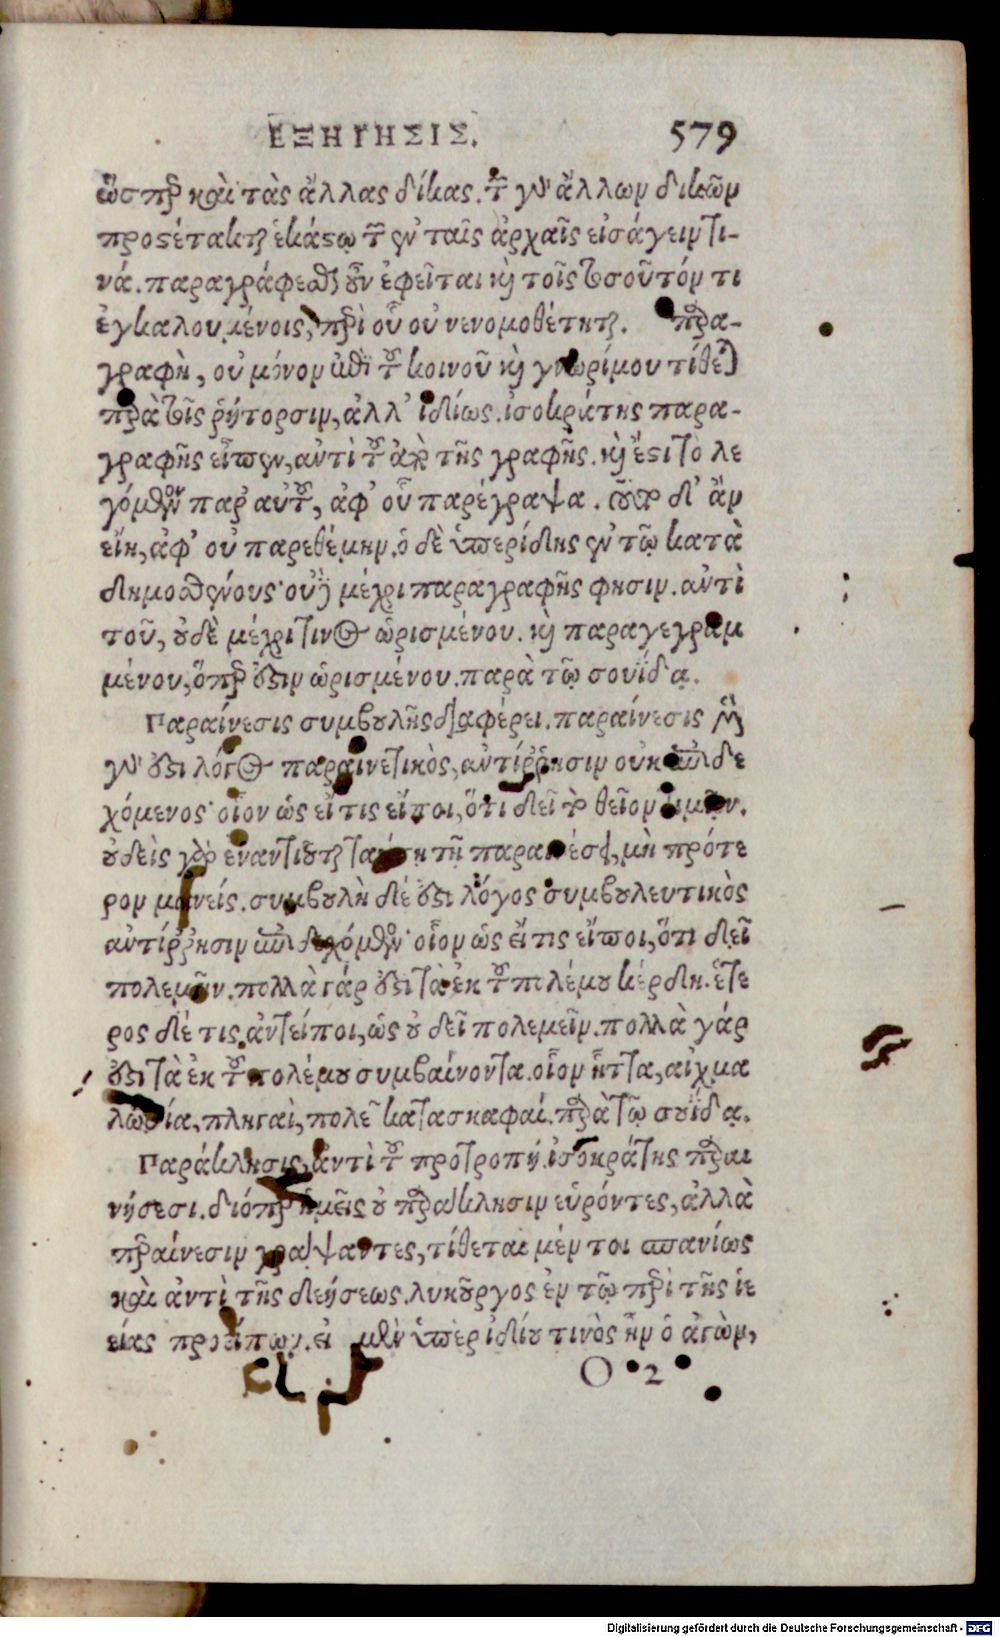 ΕΞΗΓΗΣΙΣ. 579
ὥσπερ καὶ τὰς ἄλλας δίκας. τῶν γὰρ ἄλλων δικῶν
προστέτακται ἑκάστῳ τῶν ἐν ταῖς ἀρχαῖς εἰσάγειν τι-
νά. παραγράφεσθαι οὖν ἐφεῖται καὶ τοῖς τοιοῦτόν τι
ἐγκαλουμένοις, περὶ οὗ οὐ νενομοθέτηται. παρα-
γραφὴ, οὐ μόνον ἐπὶ τοῦ κοινοῦ καὶ γνωρίμου τίθεται
παρὰ τοῖς ῥήτορσιν, ἀλλ' ἰδίως. ἰσοκράτης παρα-
γραφῆς εἶπεν, αὐτὶ τοῦ ἀπὸ τῆς γραφῆς. καὶ ἔστι τὸ λε
γόμενον παρ' αὐτοῦ, ἀφ' οὗ παρέγραψα. τοῦτο δ' ἂν
εἴη, ἀφ' οὗ παρεθέμην. ὁ δὲ ὑπερίδης ἐν τῷ κατὰ
δημοσθένους· οὐδὲ μέχρι παραγραφῆς φησιν. αὐτὶ
τοῦ, οὐδὲ μέχρι τινος ὡρισμένου. καὶ παραγεγραμ
μένου, ὅπερ ἐστὶν ὡρισμένου. παρὰ τῷ σουΐδᾳ.
Παραίνεσις συμβουλῆς διαφέρει. παραίνεσις μὲν
γάρ ἐστι λόγος παραινετικὸς, αὐτίῤῥησιν οὐκ ἐπιδε
χόμενος· οἷον ὡς εἴ τις εἴποι, ὅτι δεῖ τὸ θεῖον τιμᾶν.
οὐδεὶς γὰρ ἐναντιοῦται ταύτῃ τῇ παραινέσει, μὴ πρότε
ρον μανείς. συμβουλὴ δέ ἐστι λόγος συμβουλευτικὸς
αὐτίῤῥησιν ἐπιδεχόμενον· οἷον ὡς εἴ τις εἴποι, ὅτι δεῖ
πολεμεῖν. πολλὰ γάρ ἐστι τὰ ἐκ τοῦ πολέμου κέρδη. ἕτε
ρος δέ τις ἀντείποι, ὡς οὐ δεῖ πολεμεῖν. πολλὰ γάρ
ἐστι τὰ ἐκ τοῦ πολέμου συμβαίνοντα. οἷον ἧττα, αἰχμα
λωσία, πληγαὶ, πολε͂ κατασκαφαί. παρὰ τῷ σουΐδᾳ.
Παράκλησις, ἀντὶ τοῦ προτροπή. ἰσοκράτης παραι
νήσεσι. διόπερ ἡμεῖς οὐ παράκλησιν εὑρόντες, ἀλλὰ
παραίνεσιν γράψαντες, τίθεται μέν τοι σπανίως
καὶ ἀντὶ τῆς δεήσεως. λυκοῦργος ἐν τῷ περὶ τῆς ἱε
είας προεῖπων. εἰ μὲν ὑπὲρ ἰδίου τινὸς ἦν ὁ ἀγὼν,
O 2
Digitalisierung gefördert durch die Deutsche Forschungsgemeinschaft - DFG